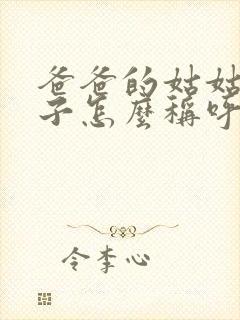 爸爸的姑姑
子怎麼稱呼
令李心